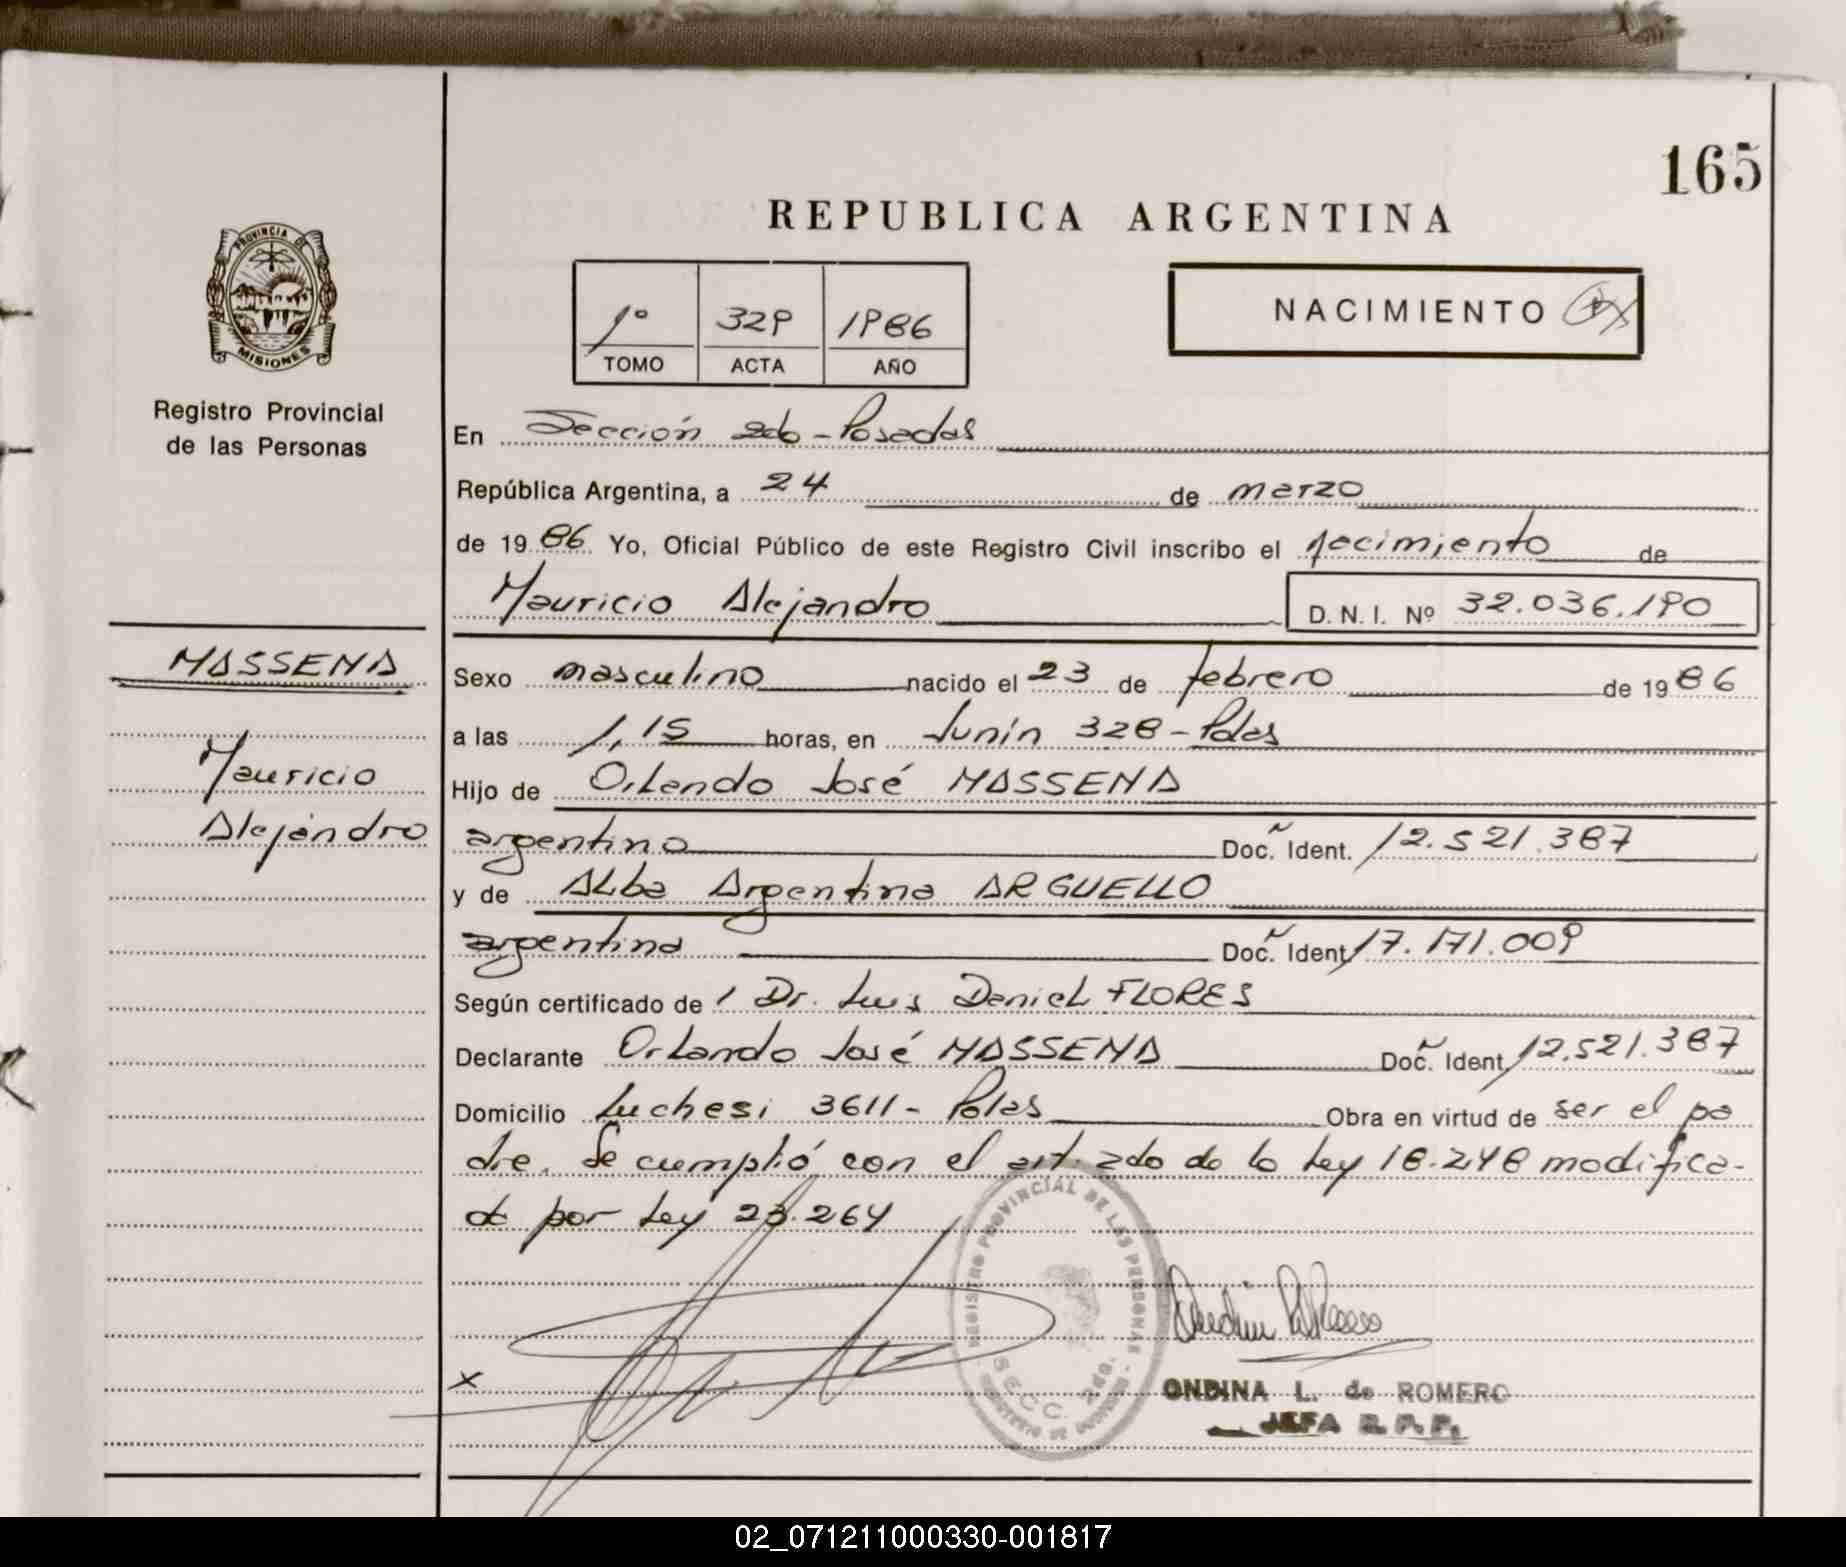 165
REPUBLICA ARGENTINA
PROVINCIA DE
MISIONES
Registro Provincial
de las Personas
1º 329 1986
TOMO ACTA AÑO
NACIMIENTO
En Sección 2da - Posadas
República Argentina, a 24 de marzo
de 1986 Yo, Oficial Público de este Registro Civil inscribo el nacimiento de
Mauricio Alejandro D. N. I. Nº 32.036.190
MASSENA
Mauricio
Alejandro
Sexo masculino nacido el 23 de febrero de 1986
a las 1,15 horas, en Junín 328 - Pdas
Hijo de Orlando José MASSENA
argentino Doc. Ident. 12.521.387
y de Alba Argentina ARGUELLO
argentina Doc. Ident. 17.171.009
Según certificado de Dr. Luis Daniel FLORES
Declarante Orlando José MASSENA Doc. Ident. 12.521.387
Domicilio Luchesi 3611 - Pdas Obra en virtud de ser el pa
dre. Se cumplió con el art. 2do de la Ley 18.248 modifica-
da por Ley 23.264
REGISTRO PROVINCIAL DE LAS PERSONAS
SECC. 2da.
MINISTERIO DE GOBIERNO
ONDINA L. de ROMERO
JEFA R. P. P.
02_071211000330-001817